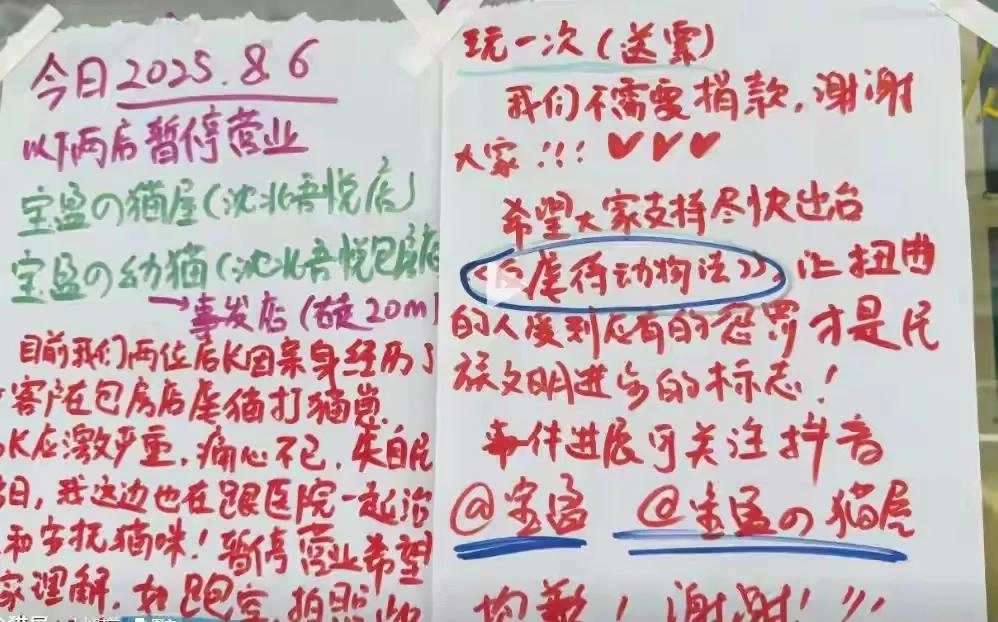 今日2025.8.6
以下两店暂停营业
宝盈の猫屋(沈北吾悦店)
宝盈の幼猫(沈北吾悦包房店
→事发店(右走20m)
目前我们两位店长因亲身经历了
客户在包房店虐猫打猫崽
长应激严重,痛心不已,失自民
日,我这边也在跟医院一起治
和安抚猫咪!暂停营业希望
家理解,如跑空,拍照
玩一次(送票)
我们不需要捐款,谢谢
大家!!!❤❤❤
希望大家支持尽快出台
《反虐待动物法》,让扭曲
的人受到应有的惩罚才是民
族文明进步的标志!
事件进展可关注抖音
@宝盈 @宝盈の猫屋
抱歉!谢谢!!!